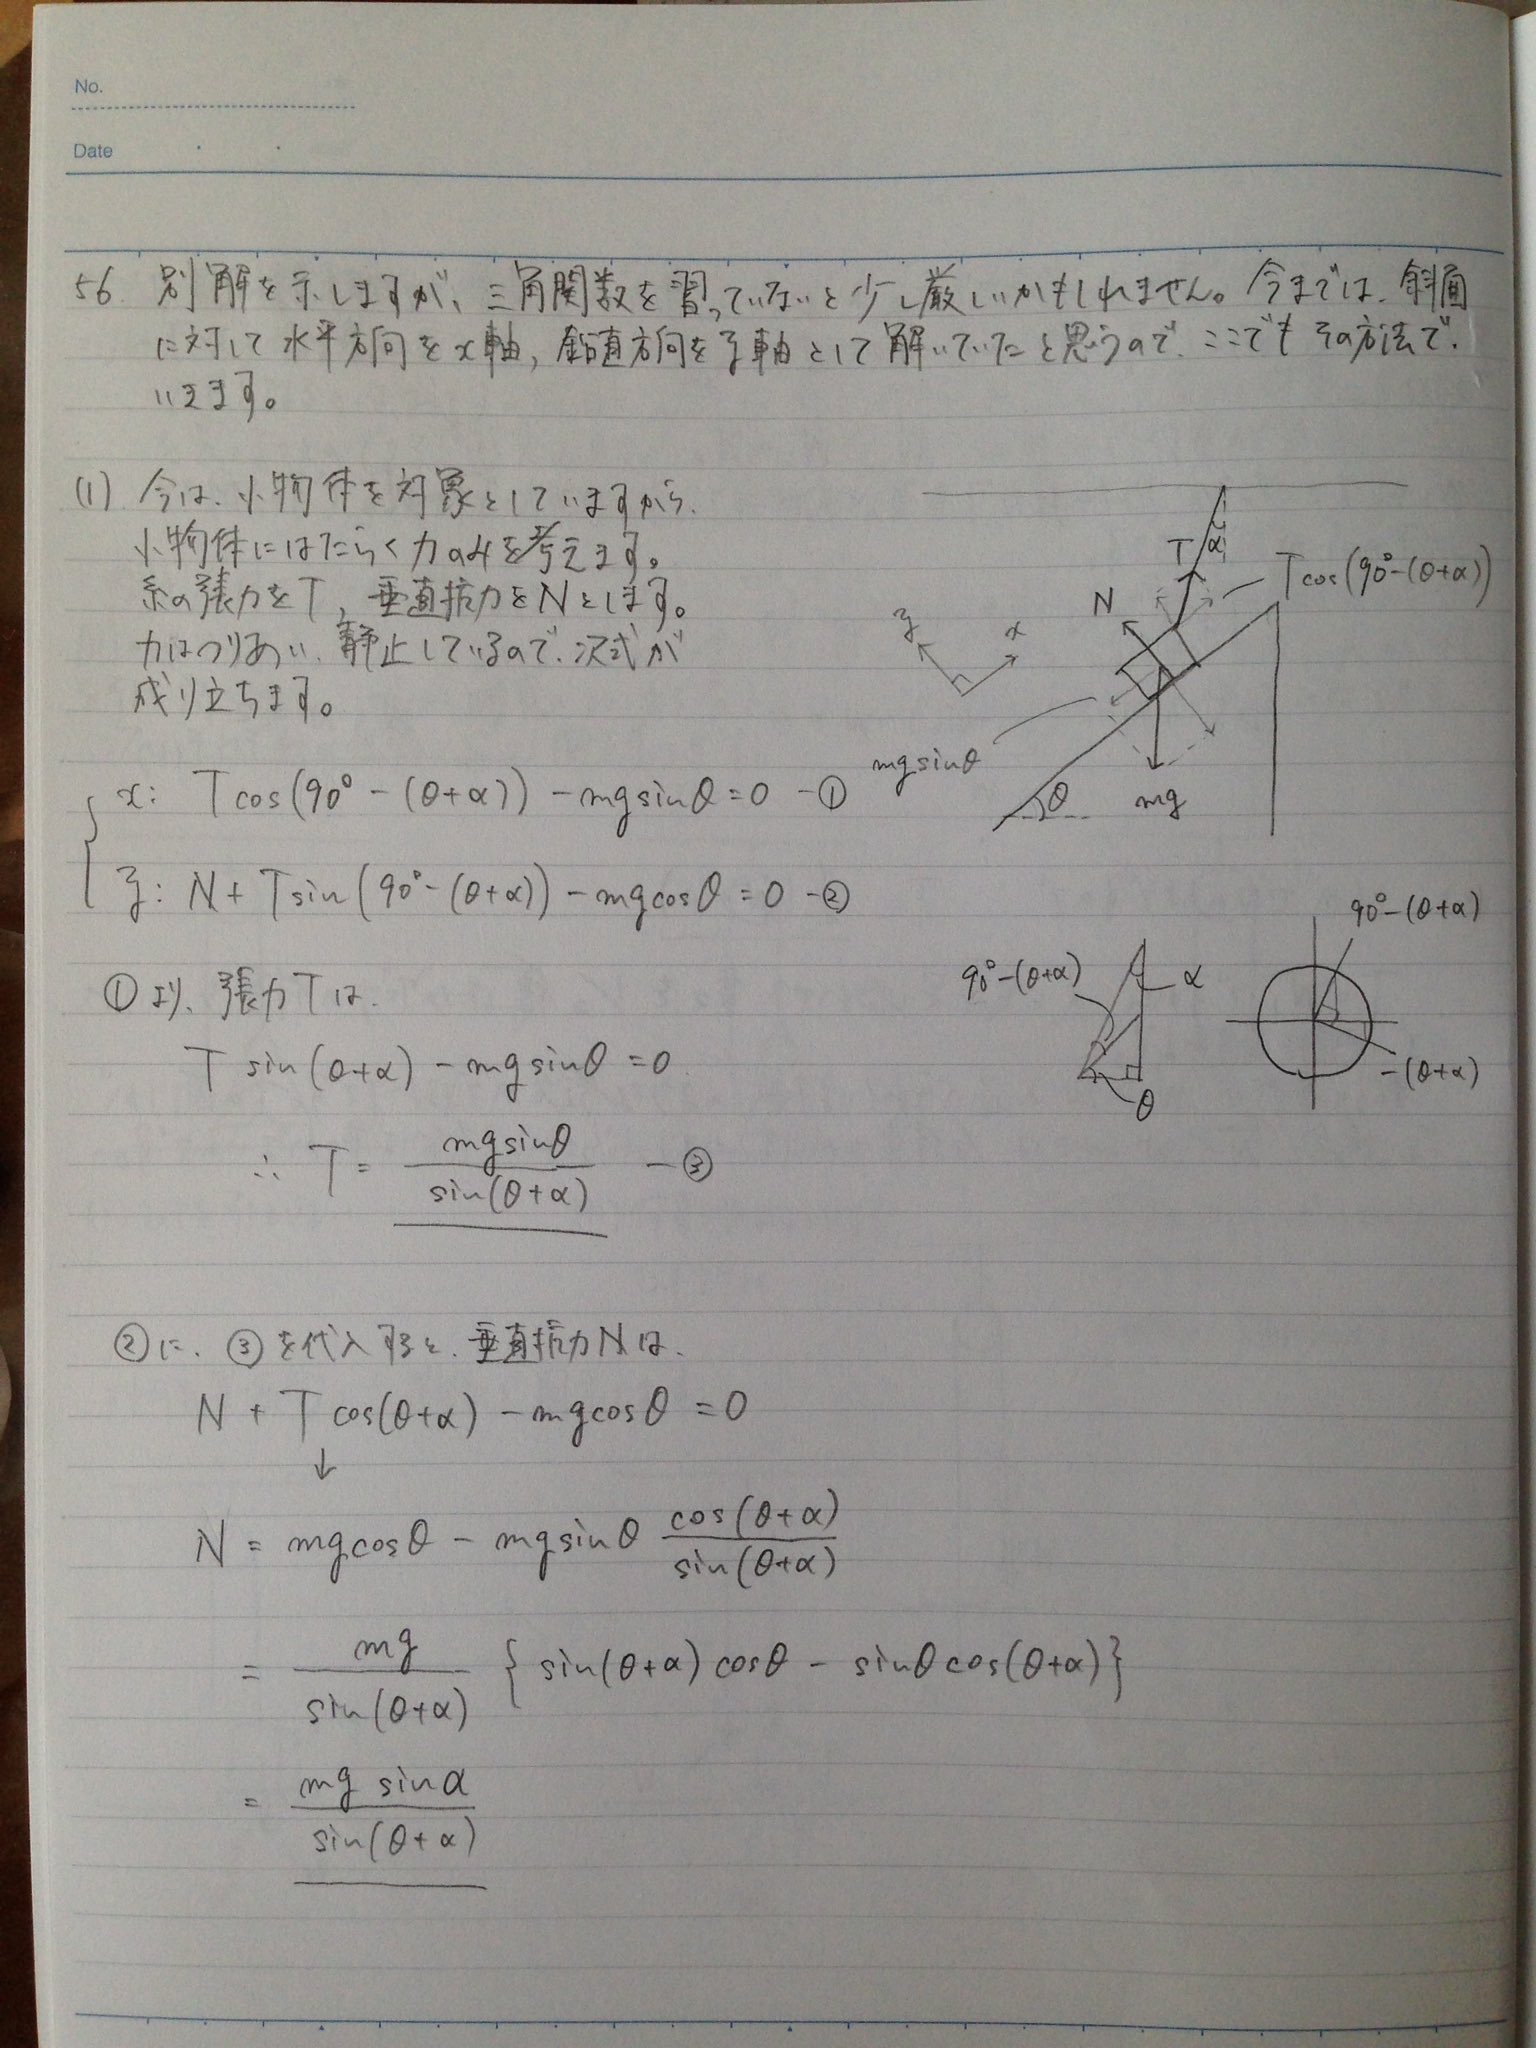 No.
Date
56. 別解を示しますが、三角関数を習っていないと少し厳しいかもしれません。今までは、斜面
に対して水平方向をx軸, 鉛直方向をy軸として解いていたと思うので、ここでもその方法で
いきます。
(1) 今は、小物体を対象としていますから、
小物体にはたらく力のみを考えます。
糸の張力をT, 垂直抗力をNとします。
力はつりあい、静止しているので、次式が
成り立ちます。
x: Tcos(90°-(θ+α)) - mgsinθ = 0 -①
y: N + Tsin(90°-(θ+α)) - mgcosθ = 0 -②
①より、張力Tは、
T sin(θ+α) - mgsinθ = 0
∴ T = mgsinθ / sin(θ+α) -③
②に、③を代入すると、垂直抗力Nは、
N + T cos(θ+α) - mgcosθ = 0
↓
N = mgcosθ - mgsinθ cos(θ+α) / sin(θ+α)
= mg / sin(θ+α) {sin(θ+α)cosθ - sinθcos(θ+α)}
= mg sinα / sin(θ+α)
α
T
Tcos(90°-(θ+α))
N
y
x
mgsinθ
θ
mg
90°-(θ+α)
α
θ
90°-(θ+α)
-(θ+α)